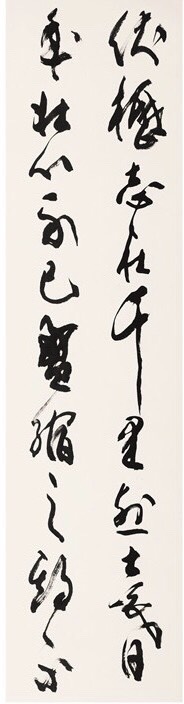 伏櫪志在千里烈士暮
年壯心不已盈縮之期不